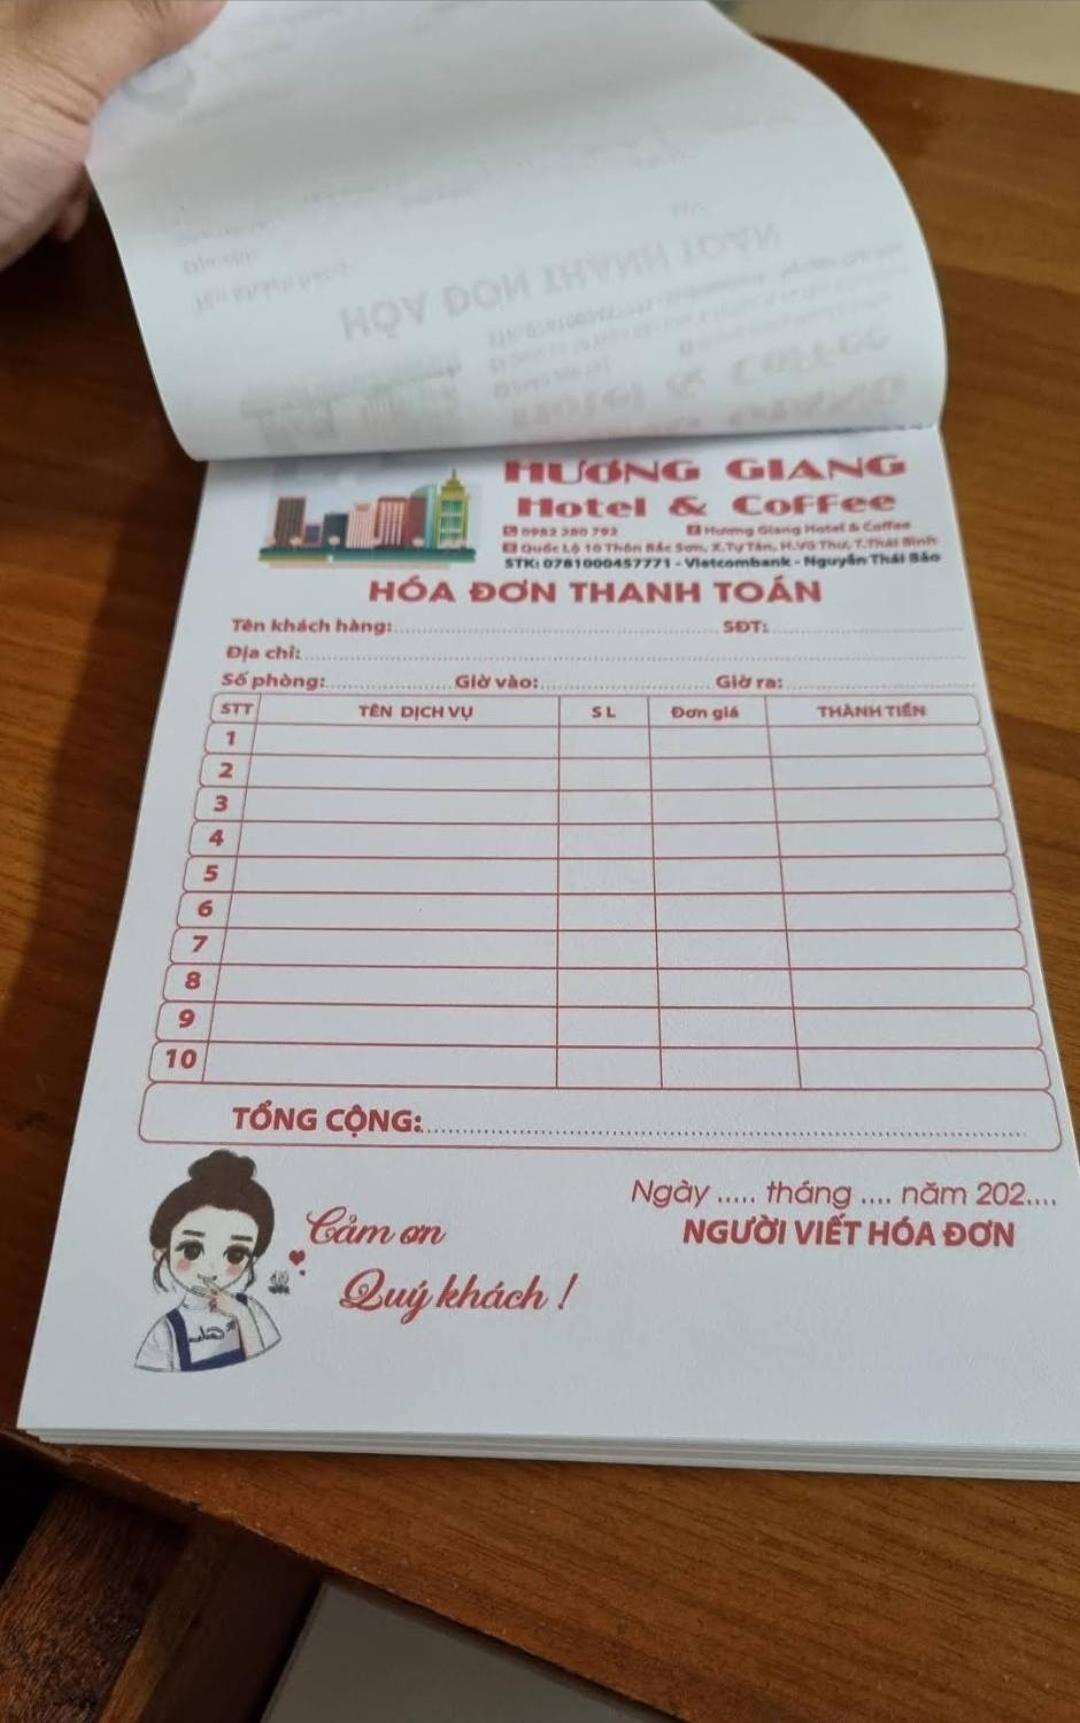 HƯƠNG GIANG
Hotel & Coffee
0982 280 792 Hương Giang Hotel & Coffee
Quốc Lộ 10 Thôn Bắc Sơn, X.Tự Tân, H.Vũ Thư, T.Thái Bình
STK: 0781000457771 - Vietcombank - Nguyễn Thái Bảo
HÓA ĐƠN THANH TOÁN
Tên khách hàng: SĐT:
Địa chỉ:
Số phòng: Giờ vào: Giờ ra:
STT TÊN DỊCH VỤ SL Đơn giá THÀNH TIỀN
1
2
3
4
5
6
7
8
9
10
TỔNG CỘNG:
Ngày ..... tháng .... năm 202....
NGƯỜI VIẾT HÓA ĐƠN
Cảm ơn
Quý khách !